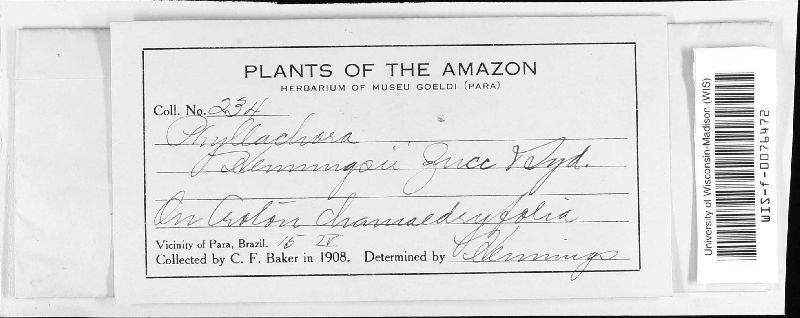 PLANTS OF THE AMAZON
HERBARIUM OF MUSEU GOELDI (PARA)
Coll. No. 234
Phyllachora
Henningsii Zucc & Syd.
On Croton chamaedryfolia
Vicinity of Para, Brazil. 15 IV
Collected by C. F. Baker in 1908. Determined by Hennings
University of Wisconsin-Madison (WIS)
WIS-f-0076472